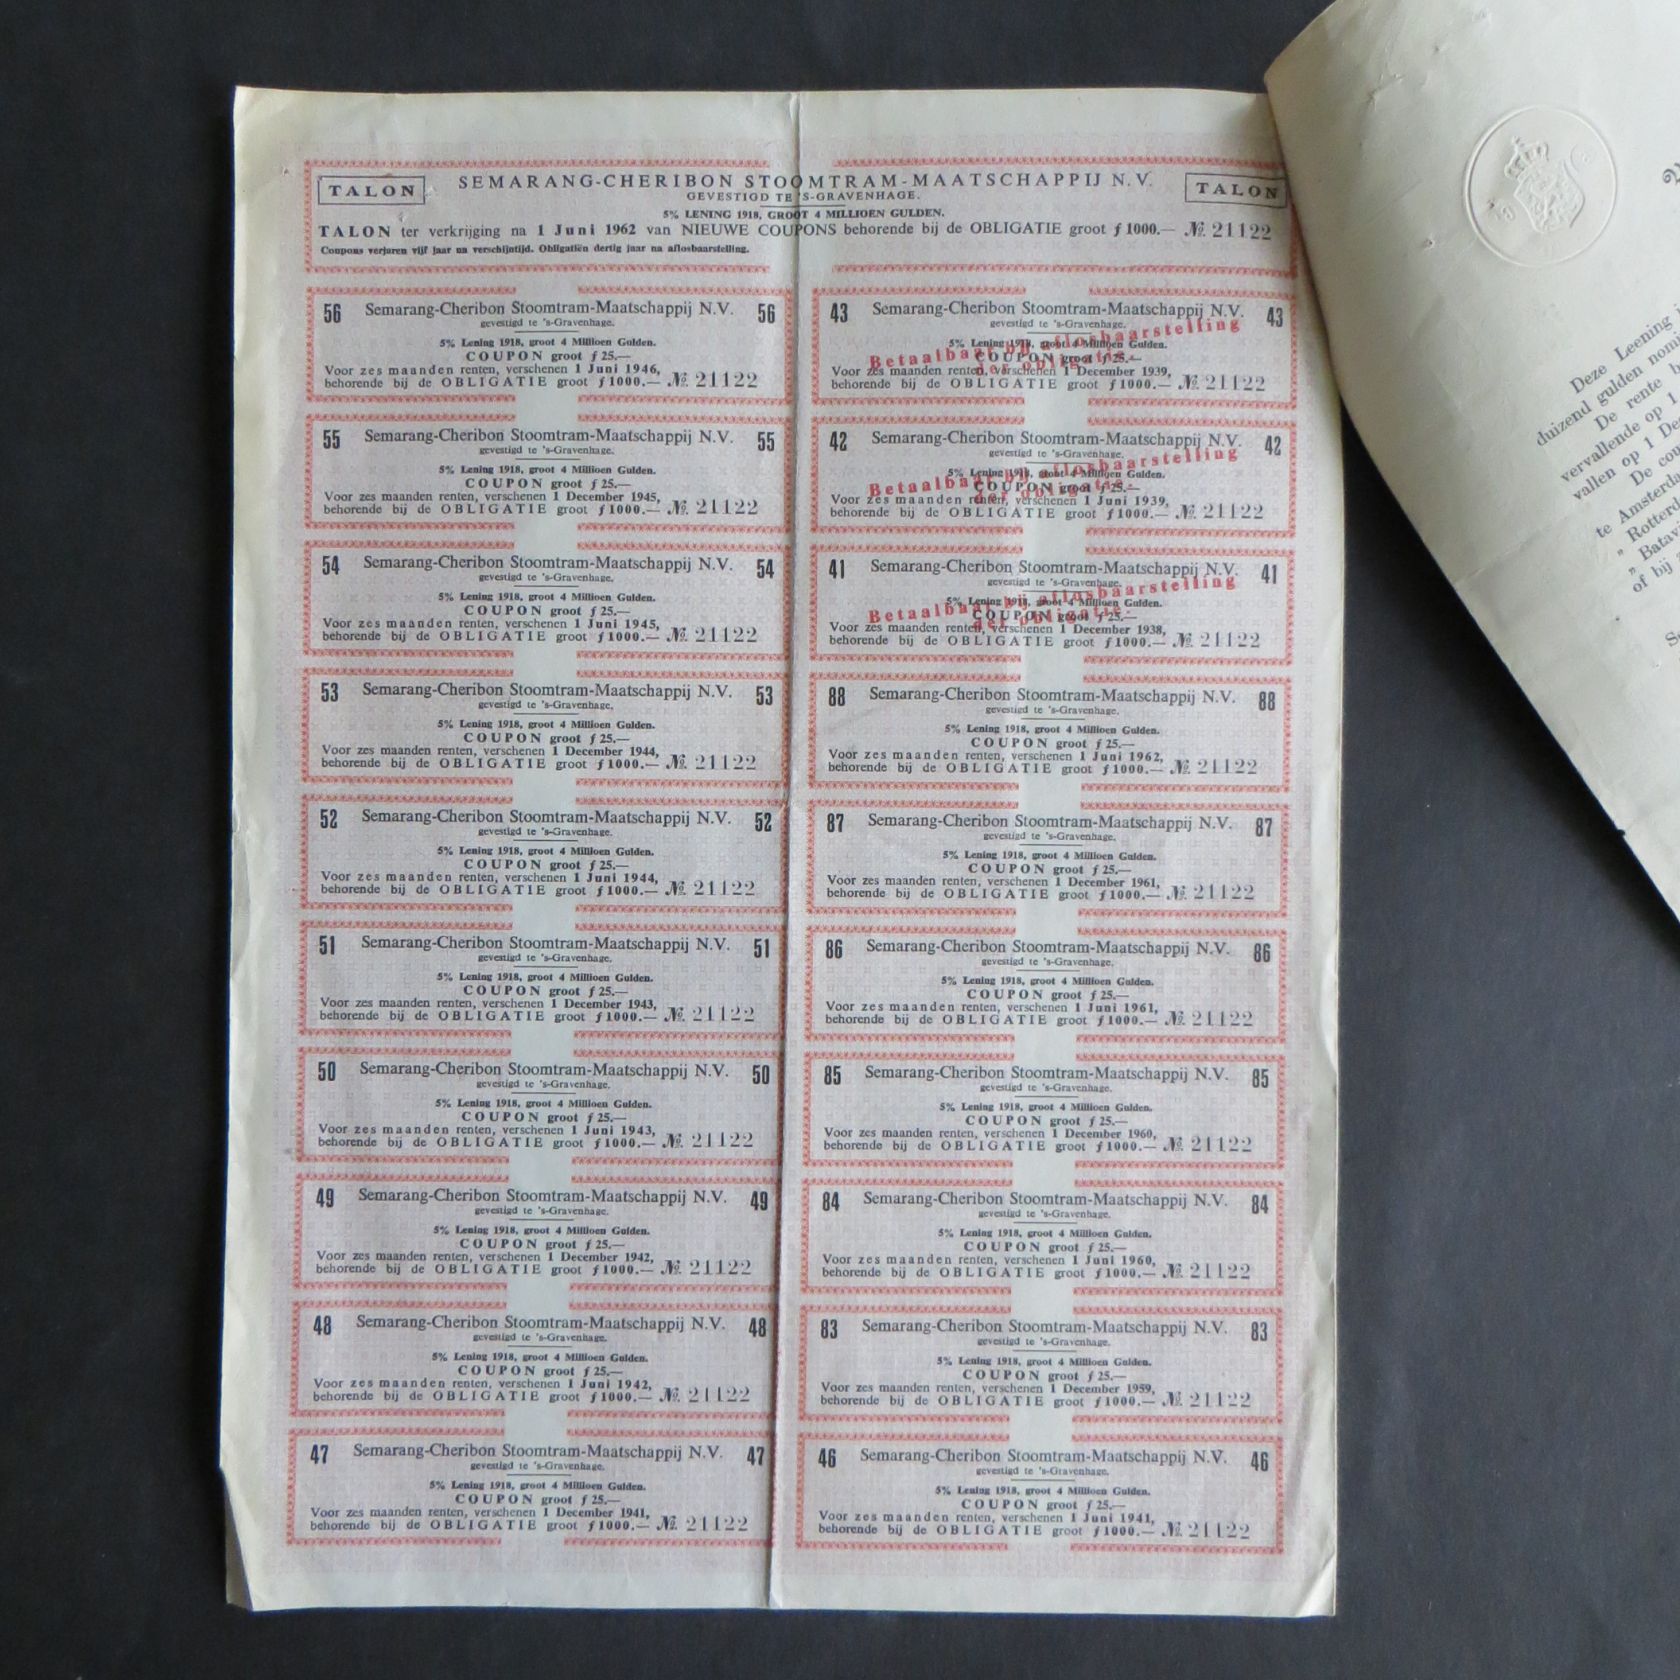 TALON SEMARANG-CHERIBON STOOMTRAM-MAATSCHAPPIJ N.V. TALON
GEVESTIGD TE 'S-GRAVENHAGE.
5% LENING 1918, GROOT 4 MILLIOEN GULDEN.
TALON ter verkrijging na 1 Juni 1962 van NIEUWE COUPONS behorende bij de OBLIGATIE groot ƒ 1000.— №. 21122
Coupons verjaren vijf jaar na verschijntijd. Obligatiën dertig jaar na aflosbaarstelling.
56 Semarang-Cheribon Stoomtram-Maatschappij N.V. 56
gevestigd te 's-Gravenhage.
5% Lening 1918, groot 4 Millioen Gulden.
COUPON groot ƒ 25.—
Voor zes maanden renten, verschenen 1 Juni 1946,
behorende bij de OBLIGATIE groot ƒ 1000.— №. 21122
55 Semarang-Cheribon Stoomtram-Maatschappij N.V. 55
gevestigd te 's-Gravenhage.
5% Lening 1918, groot 4 Millioen Gulden.
COUPON groot ƒ 25.—
Voor zes maanden renten, verschenen 1 December 1945,
behorende bij de OBLIGATIE groot ƒ 1000.— №. 21122
54 Semarang-Cheribon Stoomtram-Maatschappij N.V. 54
gevestigd te 's-Gravenhage.
5% Lening 1918, groot 4 Millioen Gulden.
COUPON groot ƒ 25.—
Voor zes maanden renten, verschenen 1 Juni 1945,
behorende bij de OBLIGATIE groot ƒ 1000.— №. 21122
53 Semarang-Cheribon Stoomtram-Maatschappij N.V. 53
gevestigd te 's-Gravenhage.
5% Lening 1918, groot 4 Millioen Gulden.
COUPON groot ƒ 25.—
Voor zes maanden renten, verschenen 1 December 1944,
behorende bij de OBLIGATIE groot ƒ 1000.— №. 21122
52 Semarang-Cheribon Stoomtram-Maatschappij N.V. 52
gevestigd te 's-Gravenhage.
5% Lening 1918, groot 4 Millioen Gulden.
COUPON groot ƒ 25.—
Voor zes maanden renten, verschenen 1 Juni 1944,
behorende bij de OBLIGATIE groot ƒ 1000.— №. 21122
51 Semarang-Cheribon Stoomtram-Maatschappij N.V. 51
gevestigd te 's-Gravenhage.
5% Lening 1918, groot 4 Millioen Gulden.
COUPON groot ƒ 25.—
Voor zes maanden renten, verschenen 1 December 1943,
behorende bij de OBLIGATIE groot ƒ 1000.— №. 21122
50 Semarang-Cheribon Stoomtram-Maatschappij N.V. 50
gevestigd te 's-Gravenhage.
5% Lening 1918, groot 4 Millioen Gulden.
COUPON groot ƒ 25.—
Voor zes maanden renten, verschenen 1 Juni 1943,
behorende bij de OBLIGATIE groot ƒ 1000.— №. 21122
49 Semarang-Cheribon Stoomtram-Maatschappij N.V. 49
gevestigd te 's-Gravenhage.
5% Lening 1918, groot 4 Millioen Gulden.
COUPON groot ƒ 25.—
Voor zes maanden renten, verschenen 1 December 1942,
behorende bij de OBLIGATIE groot ƒ 1000.— №. 21122
48 Semarang-Cheribon Stoomtram-Maatschappij N.V. 48
gevestigd te 's-Gravenhage.
5% Lening 1918, groot 4 Millioen Gulden.
COUPON groot ƒ 25.—
Voor zes maanden renten, verschenen 1 Juni 1942,
behorende bij de OBLIGATIE groot ƒ 1000.— №. 21122
47 Semarang-Cheribon Stoomtram-Maatschappij N.V. 47
gevestigd te 's-Gravenhage.
5% Lening 1918, groot 4 Millioen Gulden.
COUPON groot ƒ 25.—
Voor zes maanden renten, verschenen 1 December 1941,
behorende bij de OBLIGATIE groot ƒ 1000.— №. 21122
43 Semarang-Cheribon Stoomtram-Maatschappij N.V. 43
gevestigd te 's-Gravenhage.
5% Lening 1918, groot 4 Millioen Gulden.
COUPON groot ƒ 25.—
Betaalbaar bij aflosbaarstelling
der obligatie
Voor zes maanden renten, verschenen 1 December 1939,
behorende bij de OBLIGATIE groot ƒ 1000.— №. 21122
42 Semarang-Cheribon Stoomtram-Maatschappij N.V. 42
gevestigd te 's-Gravenhage.
5% Lening 1918, groot 4 Millioen Gulden.
COUPON groot ƒ 25.—
Betaalbaar bij aflosbaarstelling
der obligatie
Voor zes maanden renten, verschenen 1 Juni 1939,
behorende bij de OBLIGATIE groot ƒ 1000.— №. 21122
41 Semarang-Cheribon Stoomtram-Maatschappij N.V. 41
gevestigd te 's-Gravenhage.
5% Lening 1918, groot 4 Millioen Gulden.
COUPON groot ƒ 25.—
Betaalbaar bij aflosbaarstelling
der obligatie
Voor zes maanden renten, verschenen 1 December 1938,
behorende bij de OBLIGATIE groot ƒ 1000.— №. 21122
88 Semarang-Cheribon Stoomtram-Maatschappij N.V. 88
gevestigd te 's-Gravenhage.
5% Lening 1918, groot 4 Millioen Gulden.
COUPON groot ƒ 25.—
Voor zes maanden renten, verschenen 1 Juni 1962,
behorende bij de OBLIGATIE groot ƒ 1000.— №. 21122
87 Semarang-Cheribon Stoomtram-Maatschappij N.V. 87
gevestigd te 's-Gravenhage.
5% Lening 1918, groot 4 Millioen Gulden.
COUPON groot ƒ 25.—
Voor zes maanden renten, verschenen 1 December 1961,
behorende bij de OBLIGATIE groot ƒ 1000.— №. 21122
86 Semarang-Cheribon Stoomtram-Maatschappij N.V. 86
gevestigd te 's-Gravenhage.
5% Lening 1918, groot 4 Millioen Gulden.
COUPON groot ƒ 25.—
Voor zes maanden renten, verschenen 1 Juni 1961,
behorende bij de OBLIGATIE groot ƒ 1000.— №. 21122
85 Semarang-Cheribon Stoomtram-Maatschappij N.V. 85
gevestigd te 's-Gravenhage.
5% Lening 1918, groot 4 Millioen Gulden.
COUPON groot ƒ 25.—
Voor zes maanden renten, verschenen 1 December 1960,
behorende bij de OBLIGATIE groot ƒ 1000.— №. 21122
84 Semarang-Cheribon Stoomtram-Maatschappij N.V. 84
gevestigd te 's-Gravenhage.
5% Lening 1918, groot 4 Millioen Gulden.
COUPON groot ƒ 25.—
Voor zes maanden renten, verschenen 1 Juni 1960,
behorende bij de OBLIGATIE groot ƒ 1000.— №. 21122
83 Semarang-Cheribon Stoomtram-Maatschappij N.V. 83
gevestigd te 's-Gravenhage.
5% Lening 1918, groot 4 Millioen Gulden.
COUPON groot ƒ 25.—
Voor zes maanden renten, verschenen 1 December 1959,
behorende bij de OBLIGATIE groot ƒ 1000.— №. 21122
46 Semarang-Cheribon Stoomtram-Maatschappij N.V. 46
gevestigd te 's-Gravenhage.
5% Lening 1918, groot 4 Millioen Gulden.
COUPON groot ƒ 25.—
Voor zes maanden renten, verschenen 1 Juni 1941,
behorende bij de OBLIGATIE groot ƒ 1000.— №. 21122
Deze Leening
duizend gulden
De rente
vervallende op 1
vallen op 1 De
De cou
te Amsterda
" Rotterd
" Batav
of bij